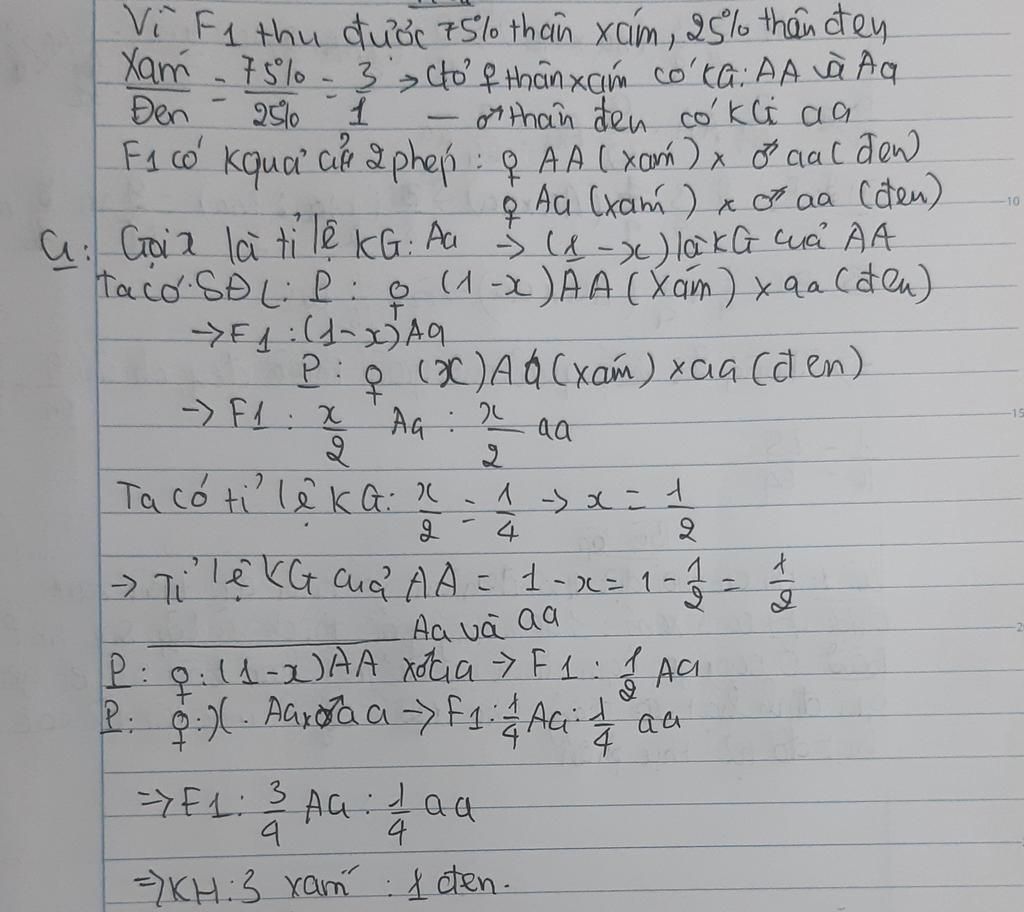 Vì F1 thu được 75% thân xám, 25% thân đen
Xám/Đen = 75%/25% = 3/1 → Ctỏ ♀ thân xám có KG: AA và Aa
— ♂ thân đen có KG aa
F1 có kquả của 2 phép: ♀ AA (xám) x ♂ aa (đen)
♀ Aa (xám) x ♂ aa (đen)
a: Gọi x là tỉ lệ KG: Aa → (1-x) là KG của AA
Ta có SĐL: P: ♀ (1-x)AA (xám) x aa (đen)
→ F1: (1-x)Aa
P: ♀ (x)Aa (xám) x aa (đen)
→ F1: x/2 Aa : x/2 aa
Ta có tỉ lệ KG: x/2 = 1/4 → x = 1/2
→ Tỉ lệ KG của AA = 1-x = 1-1/2 = 1/2
Aa và aa
P: ♀.(1-x)AA x ♂aa → F1: 1/2 Aa
P: ♀.x. Aa x ♂aa → F1: 1/4 Aa : 1/4 aa
⇒ F1: 3/4 Aa : 1/4 aa
⇒ KH: 3 xám : 1 đen.